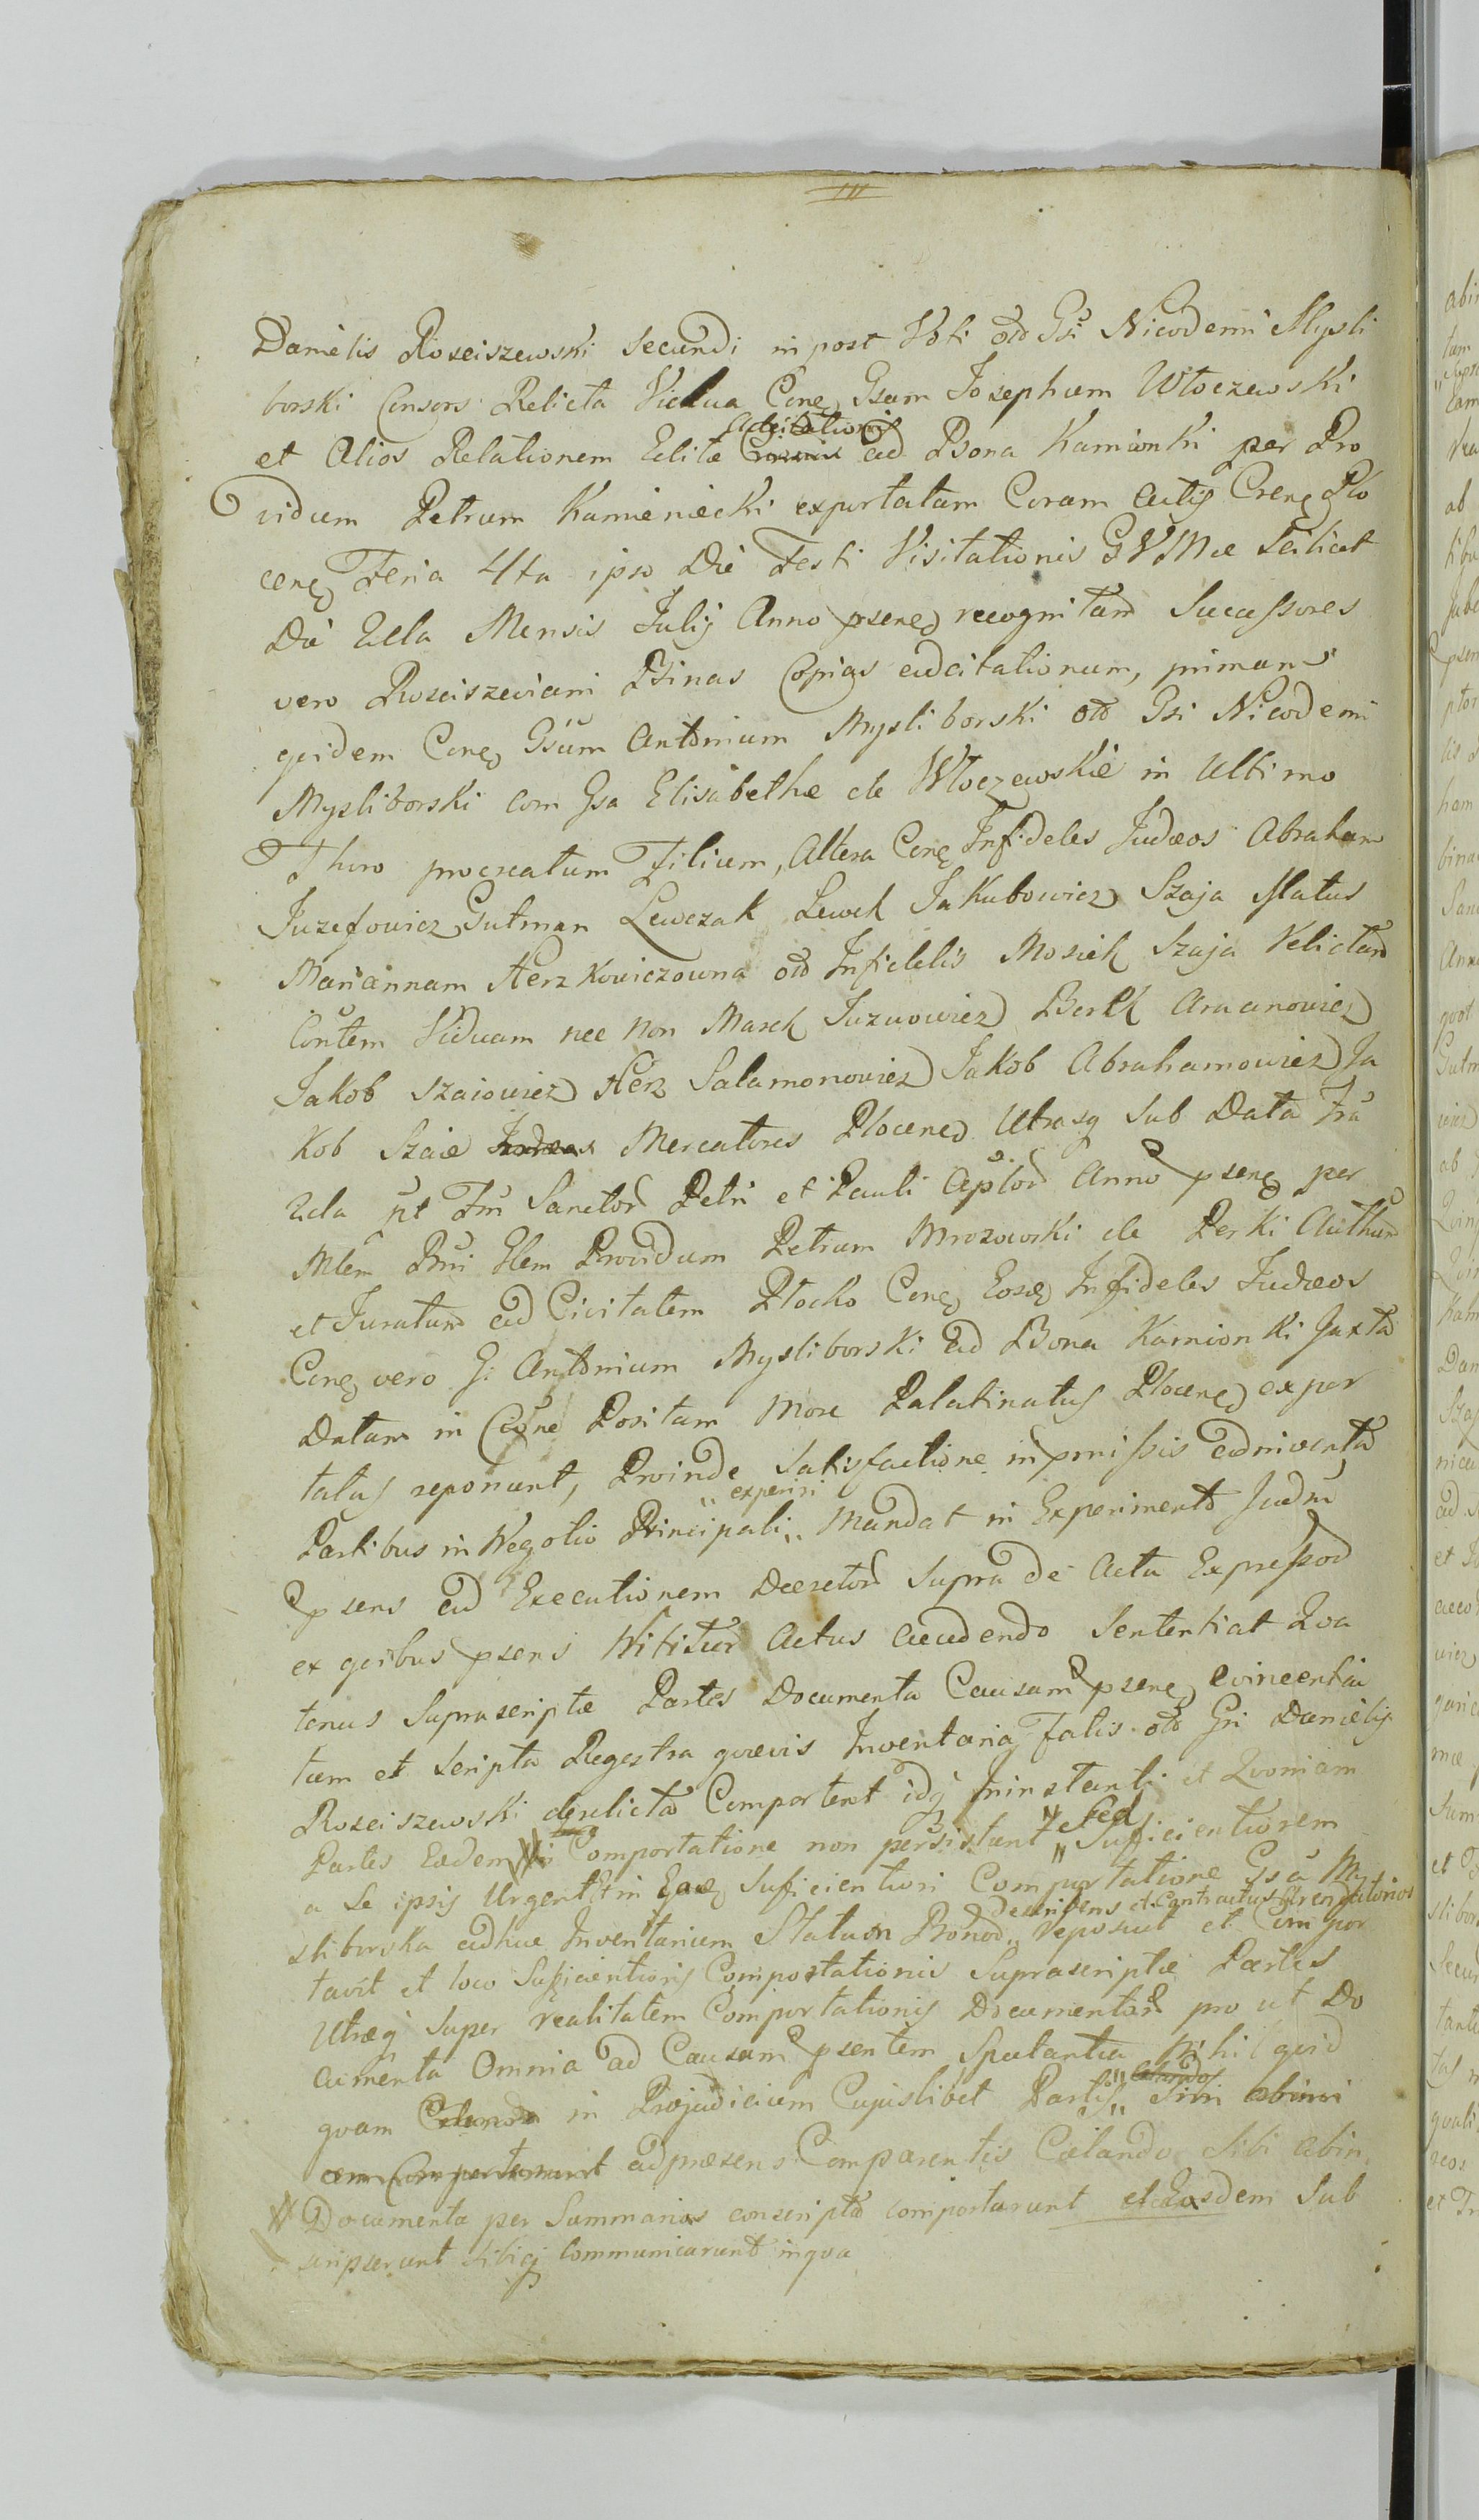 Danielis Rosciszewski secundi in post Voti olo Gsi Nicodemi Mysli
borski Consors Relicta Vidua Cone Gsum Josephum Włoczewski
et Alios Relationem Editæ Adcitationis ad Bona Kamionki per Pro
vidum Petrum Kamieniecki exportatam Coram Actis Crens Plo
cens Feria 4ta ipso Die Festi Visitationis BVMæ scilicet
Die 2da Mensis Julij Anno psens recognitam Successores
vero Rosciszeviani Binas Copias adcitationum, primam
qvidem Cone Gsum Antonium Mysliborski olo Gsi Nicodemi
Mysliborski com Gsa Elisabetha de Włoczewskie in Ultimo
Thoro procreatum Filium, Altera Cone Infideles Judæos Abraham
Juzefowicz Gutman Lewczak Lewek Jakubowicz Szaja
Mariannam Herzkowiczowna olo Infidelis Mosiek Szaja Relictam
Contem Viduam nec non Marek Juzwowicz Berek Aranowicz
Jakob Szaiowicz Herz Salamonowicz Jakob Abrahamowicz Ja
kob Szaie Judæos Mercatores Plocens Utrasq sub Data Fria
2da pt Fm Sanctor Petri et Pauli Aplor Anno psens per
Mlem Providum Petrum Mrozowski de Perki Authum
et Juratum ad Civitatem Płocko Cone Eosq Infideles Judæos
Cone vero G: Antonium Mysliborski ad Bona Kamionki Juxta
Datam in Copne Positam More Palatinatus Plocens expor
tatas reponunt, Proinde Satisfactione in pmissis adinventa
Partibus in Negotio Principali " experiri " Mandat in Experimento Judm
psens ad Executionem Decretor supra de Actu Expressor
ex qvibus psens Nititur Actus accedendo Sententiat Qva
tenus Suprascriptæ Partes Documenta Causam psens evincentia
tum et Scripta Regestra qvævis Inventaria Falis olo Gsi Danielis
Rosciszewski derelicta Comportent idq Ininstanti et Qvoniam
Partes Eædem in Comportatione non persistunt " sed " Suficientiorem
a Se ipsis Urgent Et in Eaq Suficientiori Comportatione Gsa My
sliborska adhuc Inventarium Statum Bonor " describens et Contractus Arendatorios " reposuit et Compor
tavit et loco Suficientioris Comportationis Suprascriptæ Partes
Utræq Super realitatem Comportationis Documentor pro ut Do
cumenta Omnia ad Causam psentem Spectantia Nihil qvid
qvam Celando in Præjudicium Cujuslibet Partis " celando " Sini abinvi
cem Comportarunt adpræsens Comparentes Cælando Sibi abin
Documenta per Summarios conscripta comportarunt et Eosdem Sub
scripserunt sibiq Communicarunt inqva